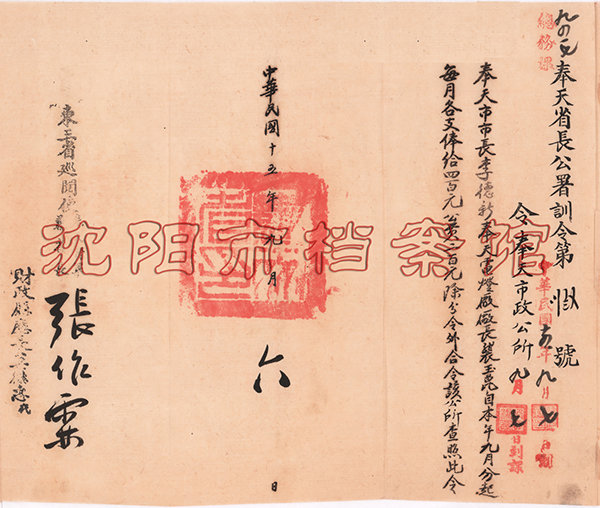 總務課
奉天省長公署訓令第 號
中華民國十五年九月七日
令奉天市政公所
九月七日到課
奉天市市長李德新奉天電燈廠廠長裴玉崑自本年九月分起
每月各支俸給四百元公費一百元除分令外合令該公所查照此令
中華民國十五年九月六日
東三省巡閱使
張作霖
財政廳廳長
沈阳市档案馆